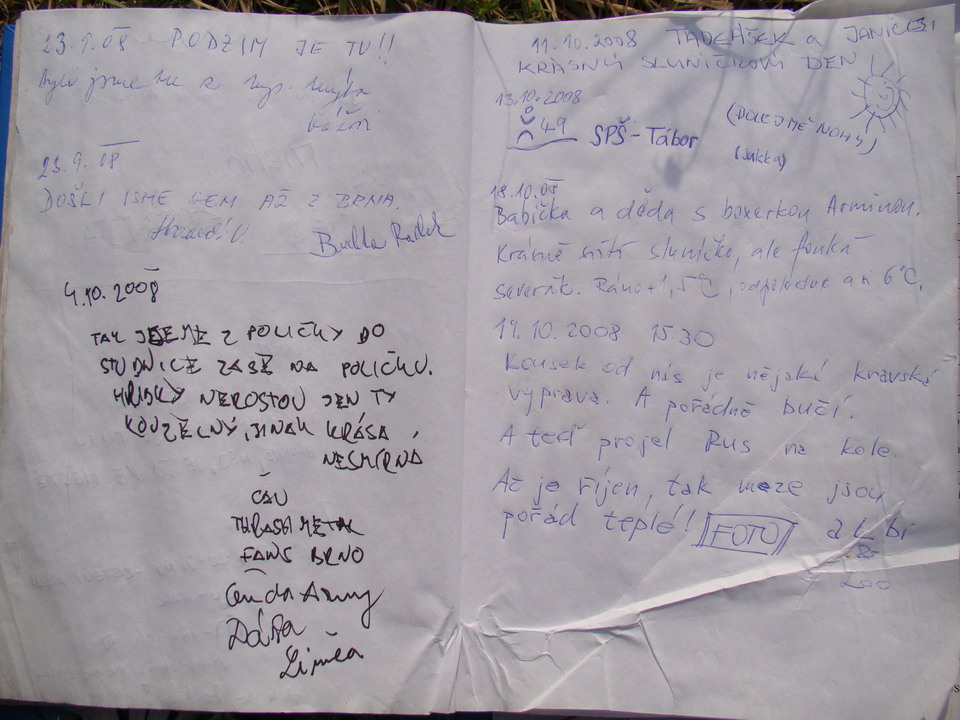 23.9.08 PODZIM JE TU!!
Byli jsme tu z
23.9.08
DOŠLI JSME SEM AŽ Z BRNA.
Radek
4.10.2008
TAK JDEME Z POLIČKY DO
STUDNICE ZASE NA POLIČKU.
HŘIBKY NEROSTOU JEN TY
KOUZELNÝ, JINAK KRÁSA
NESMÍRNÁ
ČAU
THRASH METAL
FANS BRNO
Dáša
11.10.2008 TADEÁŠEK a
KRÁSNÝ SLUNÍČKOVÝ DEN
13.10.2008
49 SPŠ-Tábor
18.10.08
Babička a děda s boxerkou Arminou.
Krásně svítí sluníčko, ale fouká
severák. Ráno +1,5°C, odpoledne asi 6°C.
19.10.2008 15.30
Kousek od nás je nějaká kravská
výprava. A pořádně bučí.
A teď projel Rus na kole.
Ač je říjen, tak meze jsou
pořád teplé! FOTO